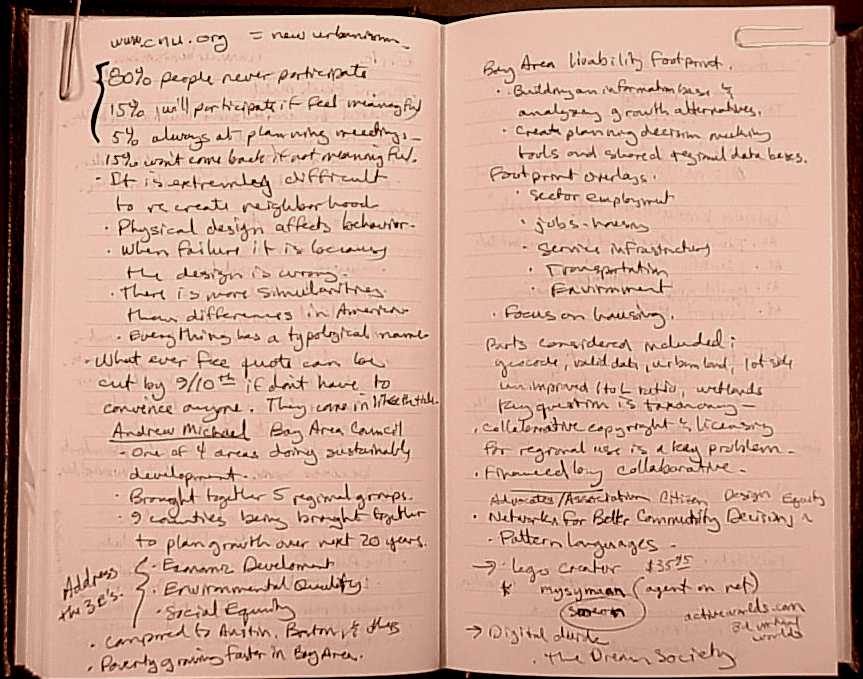 www.cnu.org = new urbanism
80% people never participate
15% will participate if feel meaningful
5% always at planning meetings
15% won't come back if not meaningful.
· It is extremely difficult
to recreate neighborhood
· Physical design affects behavior.
· When failure it is because
the design is wrong.
· There is more similarities
than differences in America
· Everything has a typological name
· What ever fee quote can be
cut by 9/10th if don't have to
convince anyone. They come in
Andrew Michael Bay Area Council
· One of 4 areas doing sustainably
development.
· Brought together 5 regional groups.
· 9 counties being brought together
to plan growth over next 20 years.
Address the 3E's.
· Economic Development
· Environmental Quality
· Social Equity
· Compared to Austin, Boston,
· Poverty growing faster in Bay Area.
Bay Area Livability Footprint.
· Building an information base &
analyzing growth alternatives.
· Create planning decision making
tools and shared regional data bases.
Footprint overlays.
· Sector employment
· jobs-housing
· Service infrastructure
· Transportation
· Environment
· Focus on housing.
Parts considered included:
geocode, valid data, urban land, lot size
unimproved I to L ratio, wetlands
Key question is taxonomy -
· Collaborative copyright & licensing
for regional use is a key problem.
· Financed by collaborative.
Advocates/Association Citizen Design Equity
· Networks for Better Community Decisions
· Pattern languages -
→ Lego Creator $35.95
(agent on net)
activeworlds.com
3d virtual
worlds
→ Digital divide
· The Dream Society